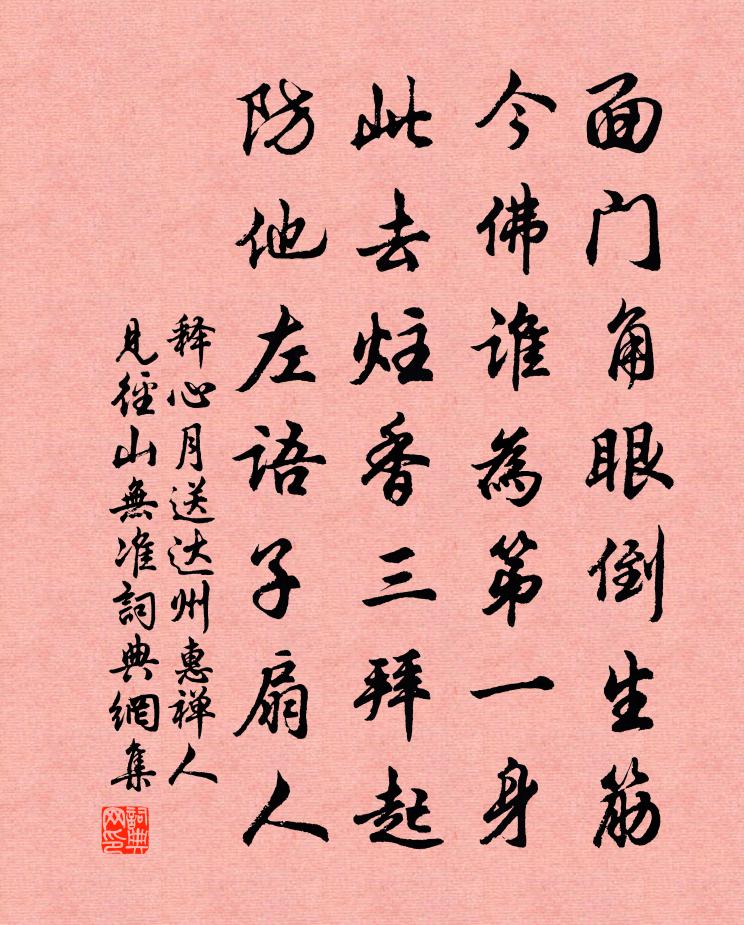 面门角眼倒生筋
今佛谁為第一身
此去炷香三拜起
防他左语子扇人
释心月送达州惠禅人
見徑山無准詞典網集
詞典网印